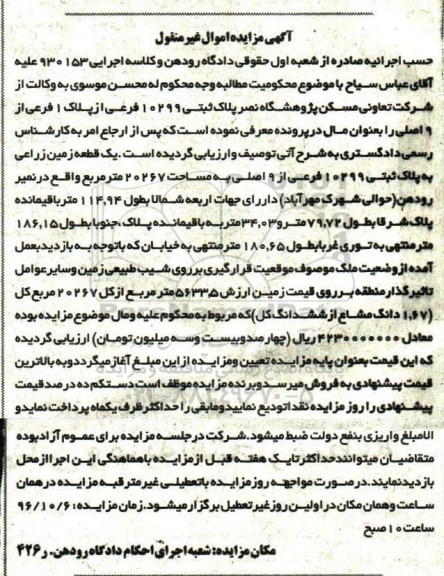 آگهی مزایده اموال غیر منقول
حسب اجرائیه صادره از شعبه اول حقوقی دادگاه رودهن و کلاسه اجرایی ۹۳۰۱۵۳ علیه
آقای عباس سیاح با موضوع محکومیت مطالبه وجه محکوم له محسن موسوی به وکالت از
شرکت تعاونی مسکن پژوهشگاه نصر پلاک ثبتی ۱۰۲۹۹ فرعی از پلاک ۱ فرعی از
۹ اصلی را بعنوان مال در پرونده معرفی نموده است که پس از ارجاع امر به کارشناس
رسمی دادگستری به شرح آتی توصیف و ارزیابی گردیده است. یک قطعه زمین زراعی
به پلاک ثبتی ۱۰۲۹۹ فرعی از ۹ اصلی به مساحت ۲۰۲۶۷ مترمربع واقع در نمیر
رودهن (حوالی شهرک مهرآباد) دارای جهات اربعه شمالا بطول ۱۱۴,۹۴ متر باقیمانده
پلاک شرقا بطول ۷۹,۷۲ متر و ۳۴,۰۳ متر به باقیمانده پلاک، جنوبا بطول ۱۸۶,۱۵
متر منتهی به توری غربا بطول ۱۸۰,۶۵ متر منتهی به خیابان که با توجه به بازدید بعمل
آمده از وضعیت ملک موصوف موقعیت قرارگیری بر روی شیب طبیعی زمین و سایر عوامل
تاثیرگذار منطقه بر روی قیمت زمین ارزش ۵۶۳۳,۵ متر مربع از کل ۲۰۲۶۷ مربع کل
(۱,۶۷ دانگ مشاع از ششدانگ کل) که مربوط به محکوم علیه و مال موضوع مزایده بوده
معادل ۴۲۳۰۰۰۰۰۰۰ ریال (چهارصد و بیست و سه میلیون تومان) ارزیابی گردیده
که این قیمت بعنوان پایه مزایده تعیین و مزایده از این مبلغ آغاز میگردد و به بالاترین
قیمت پیشنهادی به فروش میرسد و برنده مزایده موظف است دستکم ده در صد قیمت
پیشنهادی را روز مزایده نقدا تودیع نمایید و مابقی را حداکثر ظرف یکماه پرداخت نماید و
الا مبلغ واریزی بنفع دولت ضبط میشود. شرکت در جلسه مزایده برای عموم آزاد بوده
متقاضیان میتوانند حداکثر تا یک هفته قبل از مزایده با هماهنگی این اجرا از محل
بازدید نمایند. در صورت مواجهه روز مزایده با تعطیلی غیر مترقبه مزایده در همان
ساعت و همان مکان در اولین روز غیر تعطیل برگزار میشود. زمان مزایده: ۹۶/۱۰/۶
ساعت ۱۰ صبح
مکان مزایده: شعبه اجرای احکام دادگاه رودهن. ر ۴۲۶